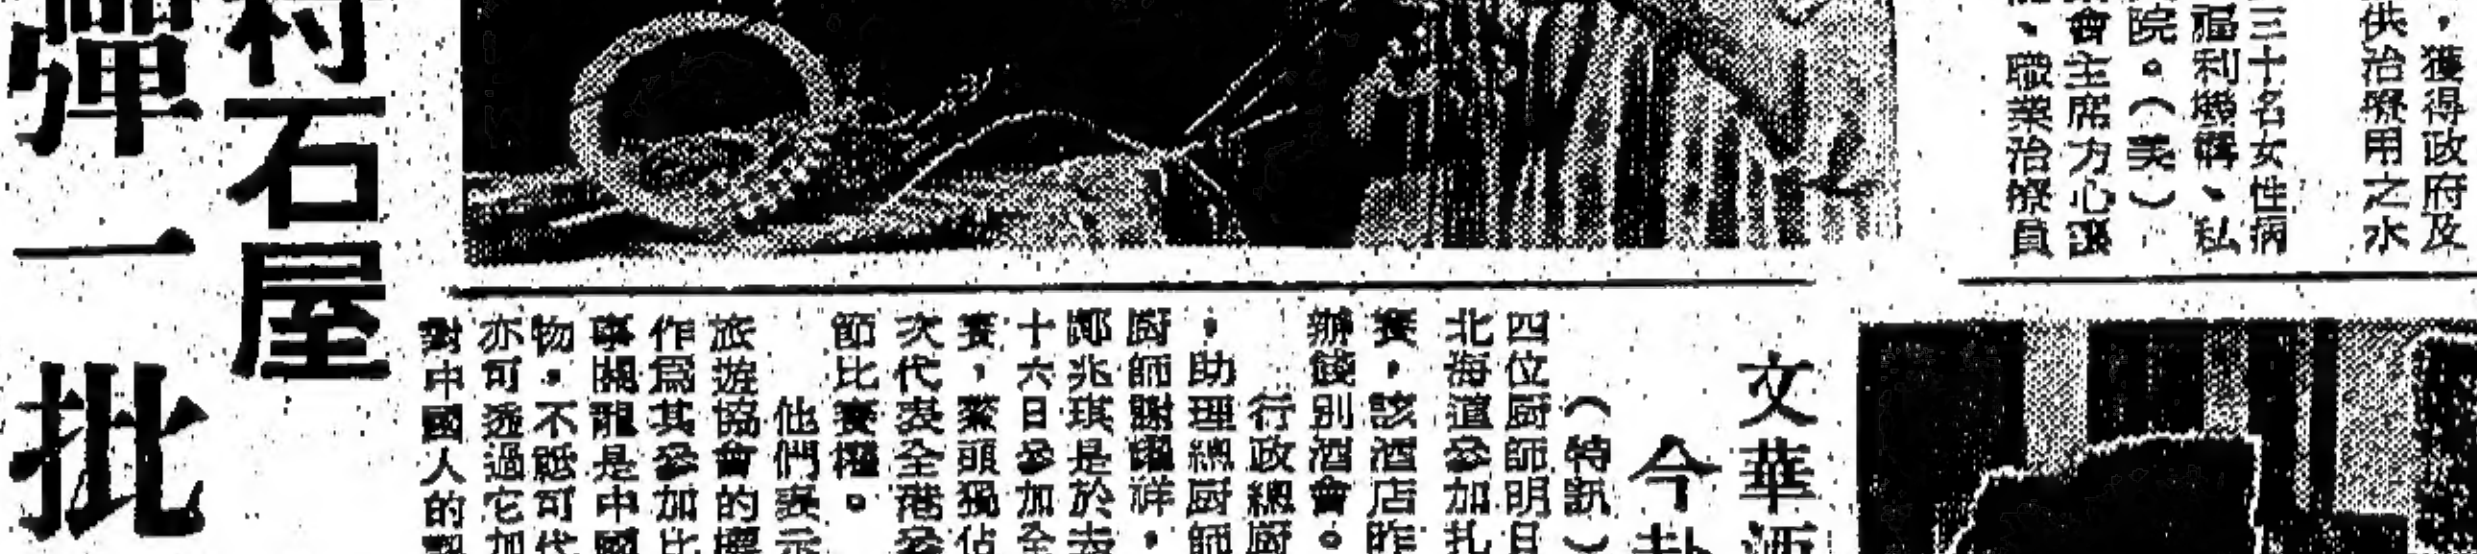 ，獲得政府及
供治療用之水
三十名女性病
福利機構、私
院。（美）
會主席方心讓
、職業治療員
文華酒
今赴
（特訊）
四位厨師明日
北海道參加扎
賽，該酒店昨
辦餞別酒會。
行政總厨
，助理總厨師
厨師謝耀祥，
鄭兆琪是於去
十六日參加全
賽，鰲頭獨佔
次代表全港參
節比賽權。
他們表示
旅遊協會的標
作爲其參加比
事關龍是中國
物，不祗可代
亦可透過它加
對中國人的
村石屋
彈一批